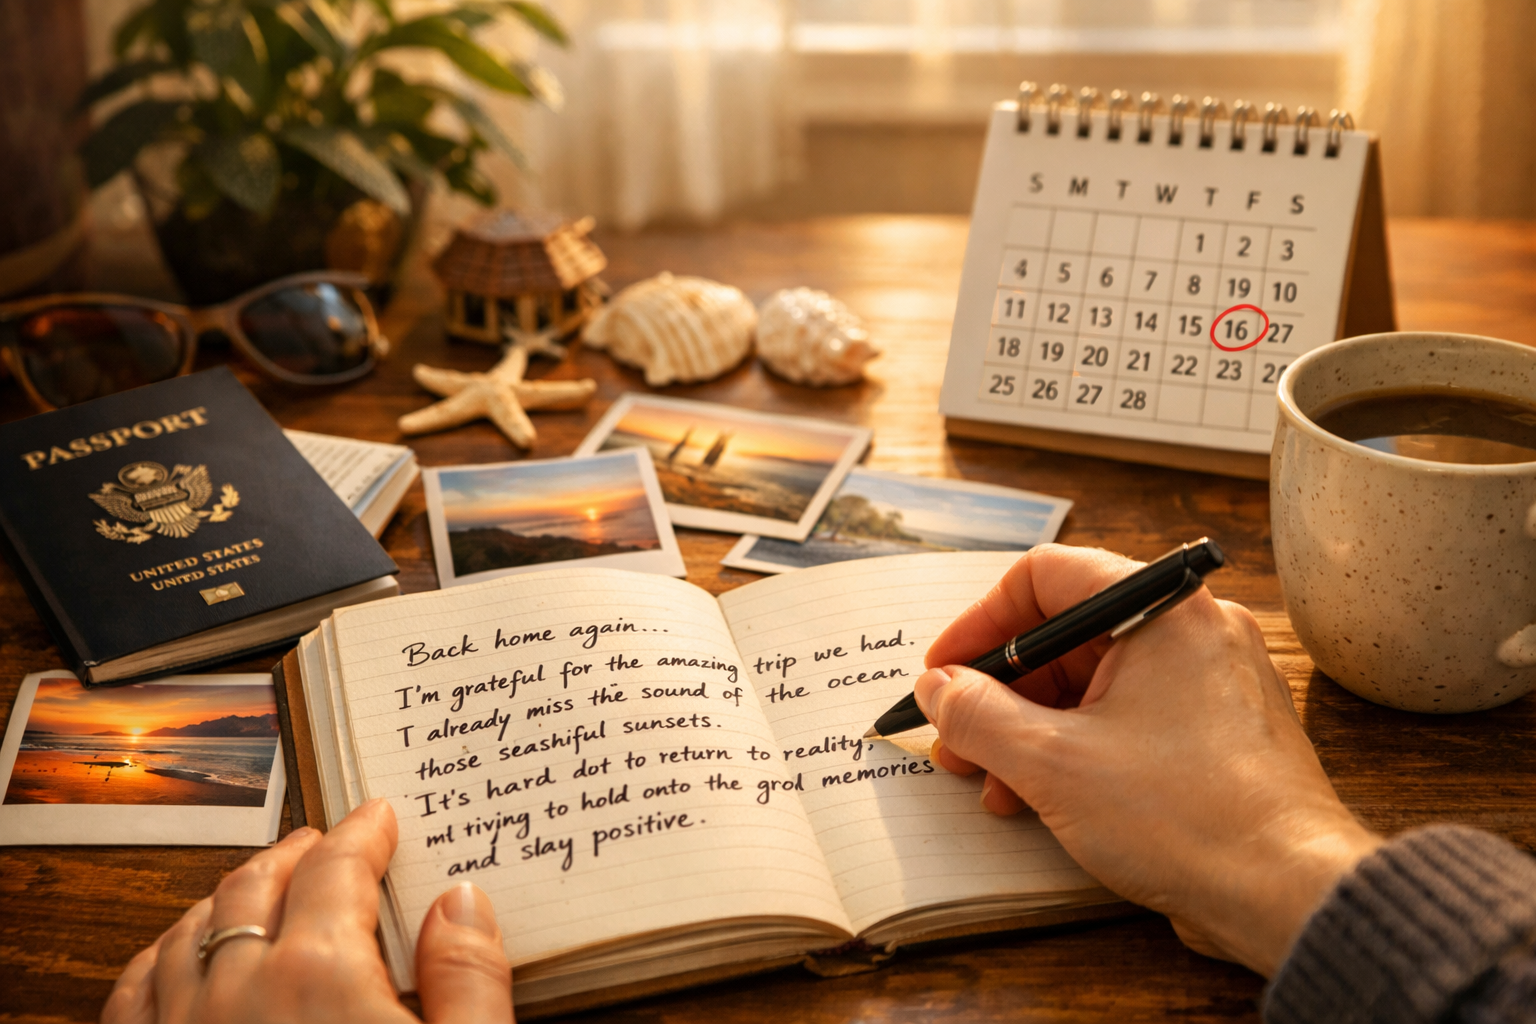 S M T W T F S
1 2 3
4 5 6 7 8 19 10
11 12 13 14 15 16 27
18 19 20 21 22 23
25 26 27 28
PASSPORT
UNITED STATES
UNITED STATES
Back home again...
I'm grateful for the amazing trip we had.
T already miss the sound of the ocean
those seashiful sunsets.
It's hard dot to return to reality,
riving to hold onto the grol memories
and slay positive.